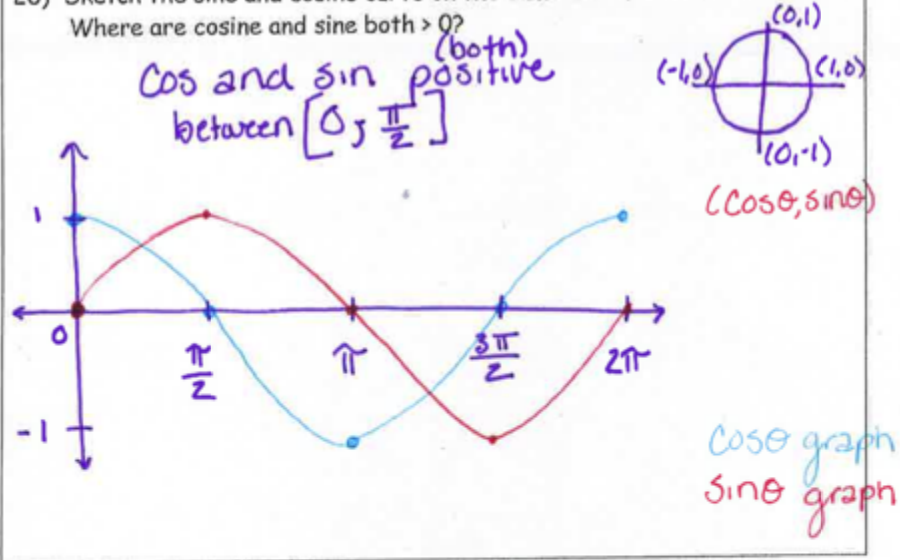 Where are cosine and sine both > 0?
(both)
Cos and sin positive
between [0, π/2]
(0,1)
(-1,0)
(1,0)
(0,-1)
(cosθ, sinθ)
1
0
π/2
π
3π/2
2π
-1
cosθ graph
sinθ graph